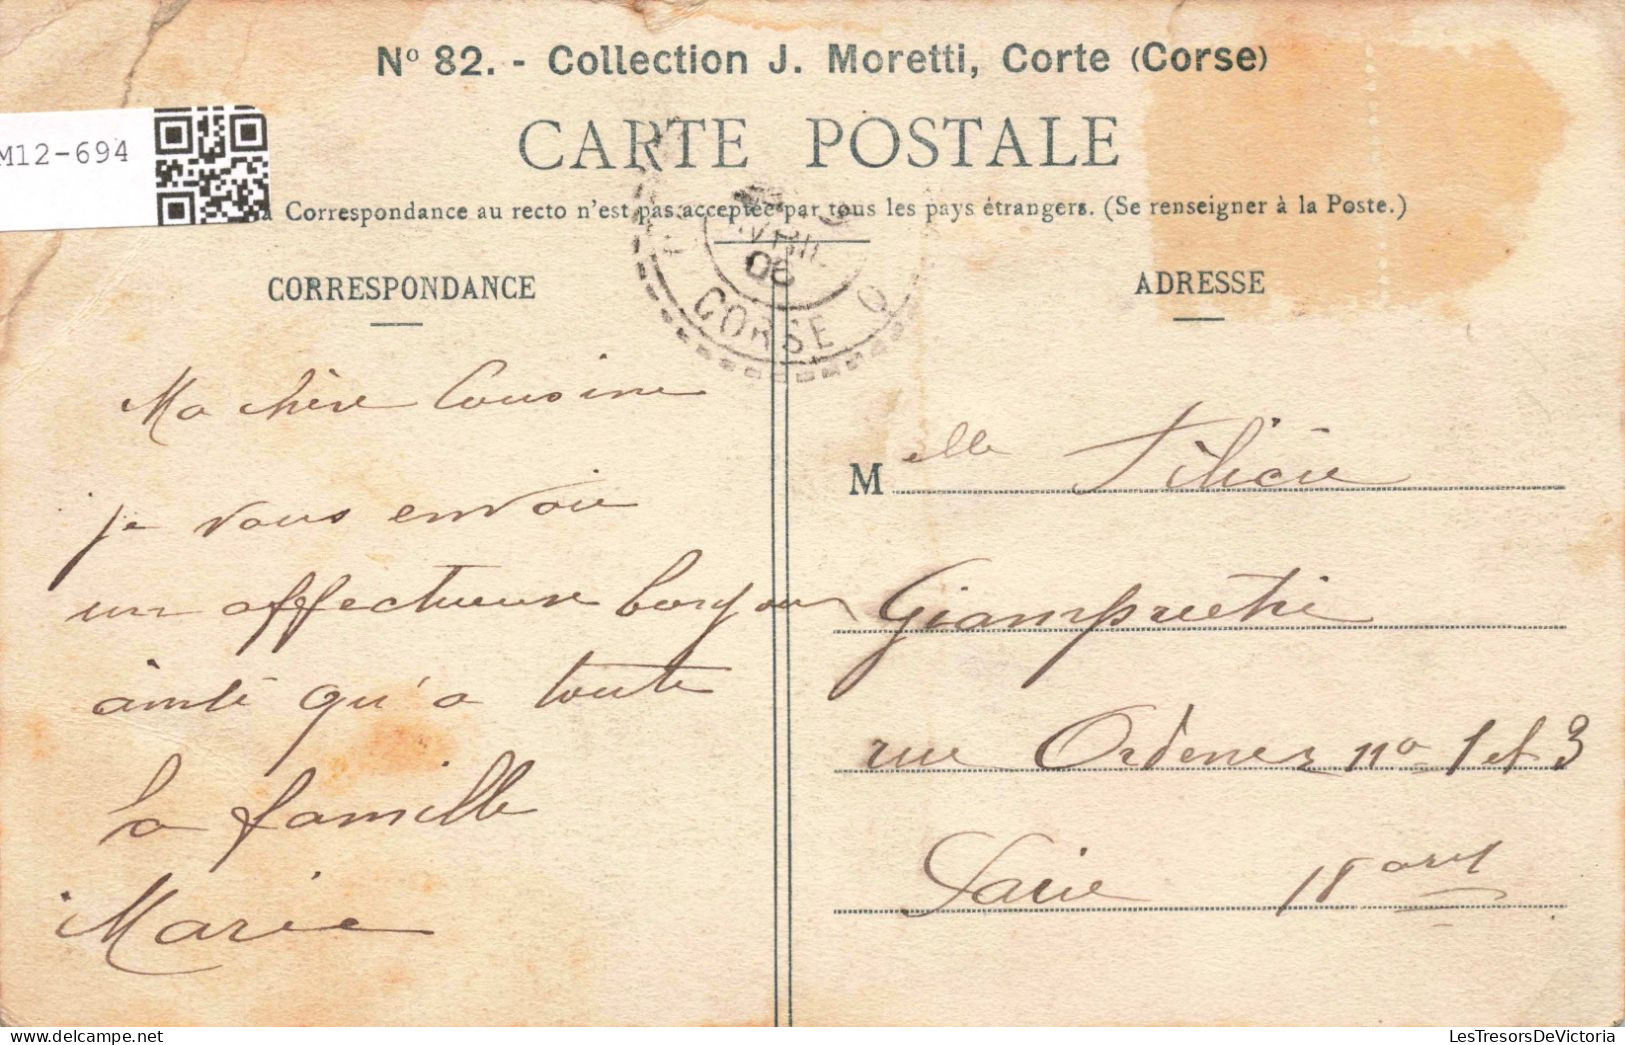 Nº 82. - Collection J. Moretti, Corte (Corse)
CARTE POSTALE
M12-694
a Correspondance au recto n'est pas acceptée par tous les pays étrangers. (Se renseigner à la Poste.)
AVRIL
06
CORSE
CORRESPONDANCE
ADRESSE
Ma chère Cousine
je vous envoie
un affectueuse bonjour
ainsi qu'a toute
la famille
Marie
Melle Félicie
Giampietri
rue Ordener nº 1 et 3
Paris 18 arrt
LesTresorsDeVictoria